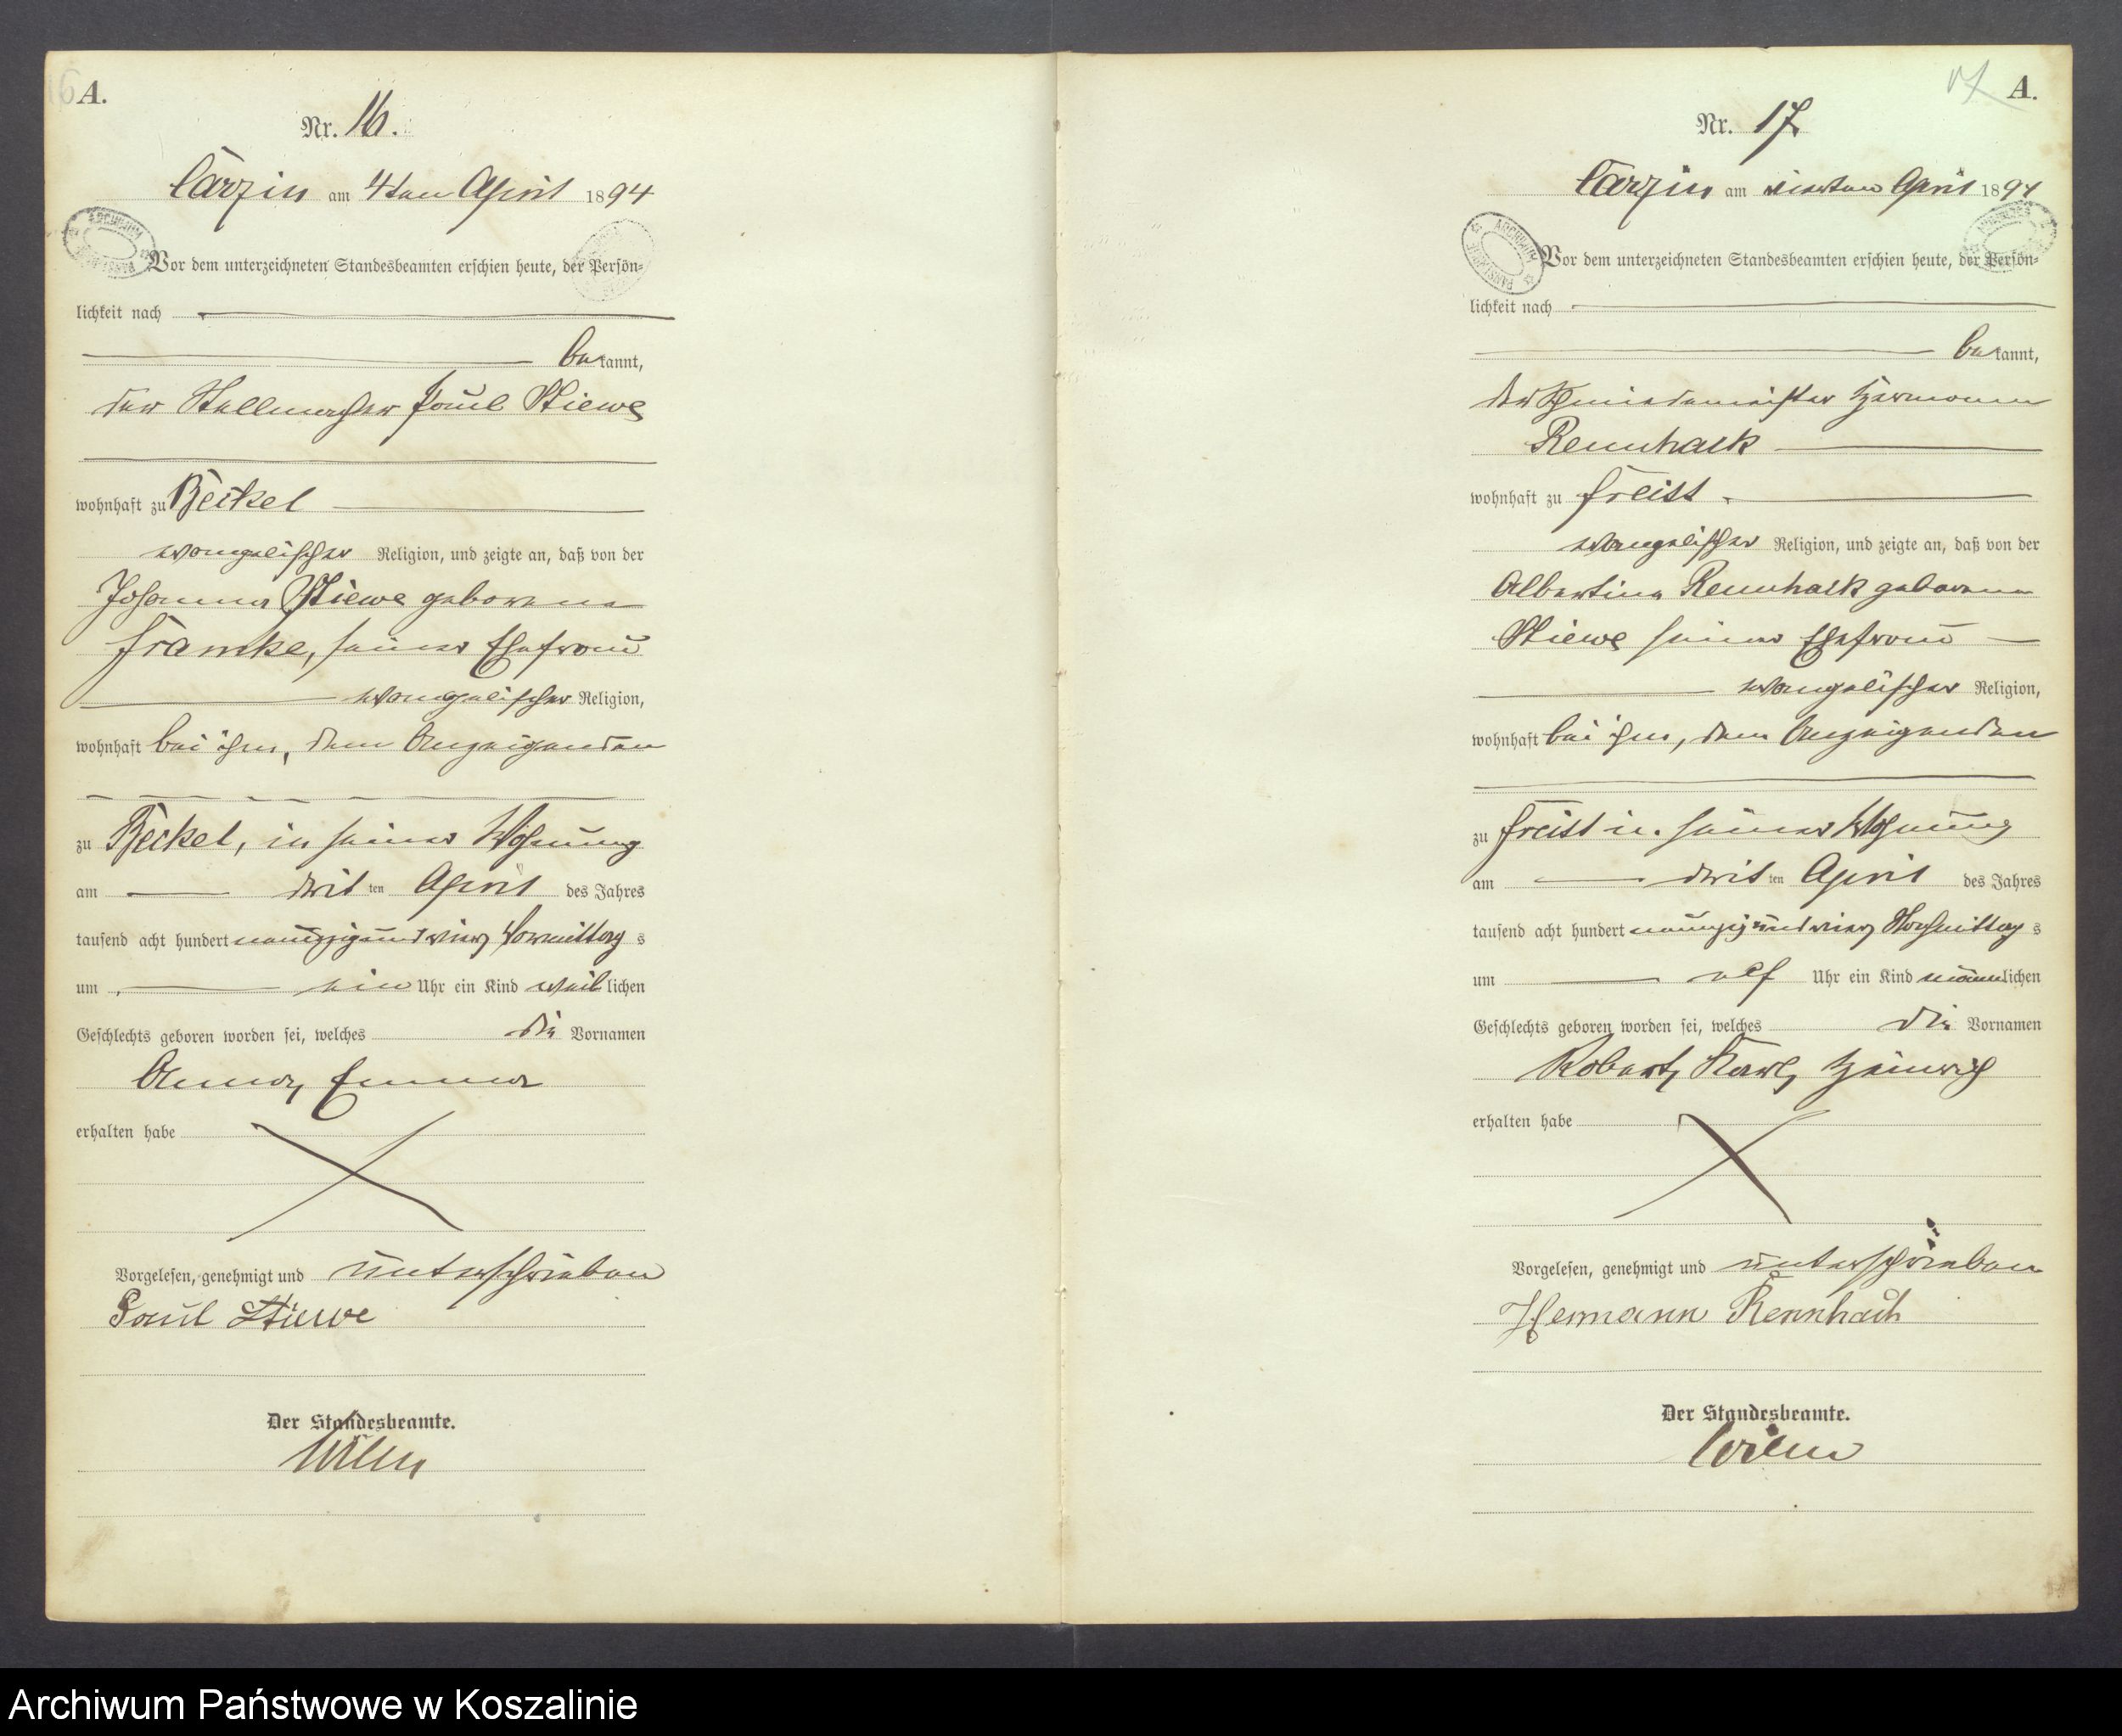 A.
Nr. 16.
Carzin am 4ten April 1894
Vor dem unterzeichneten Standesbeamten erschien heute, der Persön-
lichkeit nach
bekannt,
der Stellmacher Paul Stiewe
wohnhaft zu Beckel
evangelischer Religion, und zeigte an, daß von der
Johanna Stiewe geborene
Framke, seiner Ehefrau
evangelischer Religion,
wohnhaft bei ihm, dem Anzeigenden
zu Beckel, in seiner Wohnung
am dritten April des Jahres
tausend acht hundert neunzig und vier Vormittags
um ein Uhr ein Kind weiblichen
Geschlechts geboren worden sei, welches die Vornamen
Anna, Emma
erhalten habe
Vorgelesen, genehmigt und unterschrieben
Paul Stiewe
Der Standesbeamte.
A.
Nr. 17
Carzin am vierten April 1894
Vor dem unterzeichneten Standesbeamten erschien heute, der Persön-
lichkeit nach
bekannt,
der Schmiedemeister Hermann
Rennhack
wohnhaft zu Freist
evangelischer Religion, und zeigte an, daß von der
Albertine Rennhack geborene
Stiewe seiner Ehefrau
evangelischer Religion,
wohnhaft bei ihm, dem Anzeigenden
zu Freist in seiner Wohnung
am dritten April des Jahres
tausend acht hundert neunzig und vier Nachmittags
um elf Uhr ein Kind männlichen
Geschlechts geboren worden sei, welches die Vornamen
Robert, Karl, Heinrich
erhalten habe
Vorgelesen, genehmigt und unterschrieben
Hermann Rennhack
Der Standesbeamte.
Archiwum Państwowe w Koszalinie